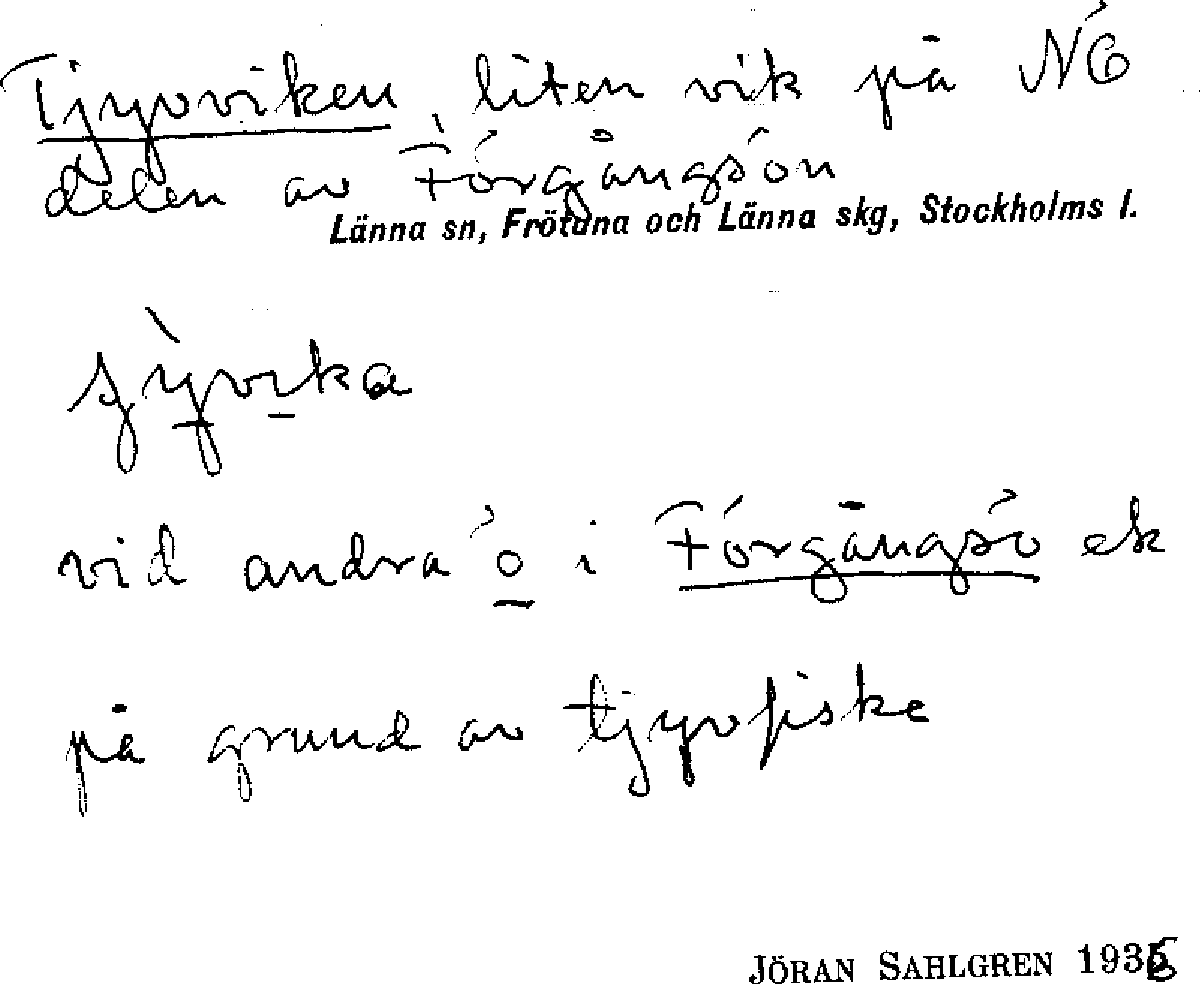 Tjyvviken, liten vik på NÖ
delen av Förgångsön
Länna sn, Frötuna och Länna skg, Stockholms l.
vid andra ö i Förgångsö ek
på grund av tjyvfiske
JÖRAN SAHLGREN 1936